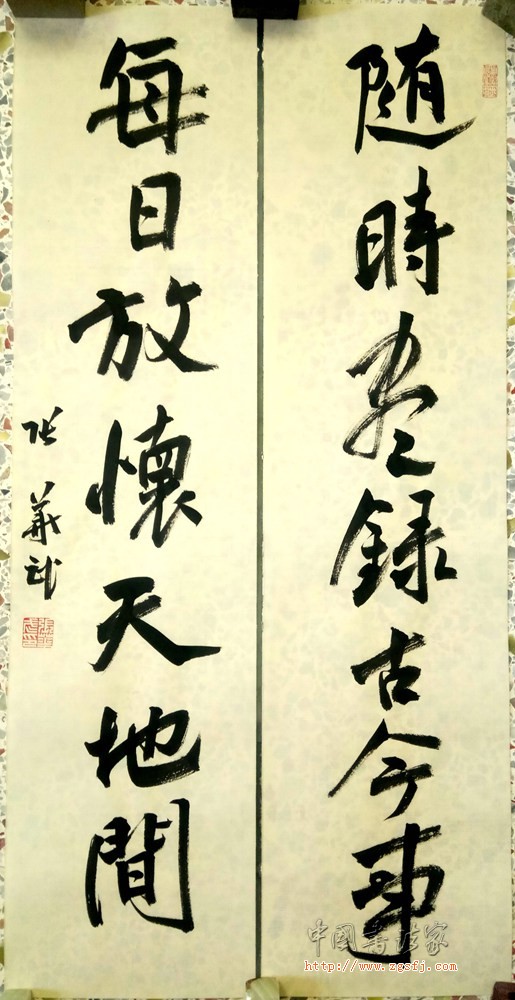 随時盡錄古今事
每日放懷天地間
张華武
中国書法家
http://www.zgsfj.com